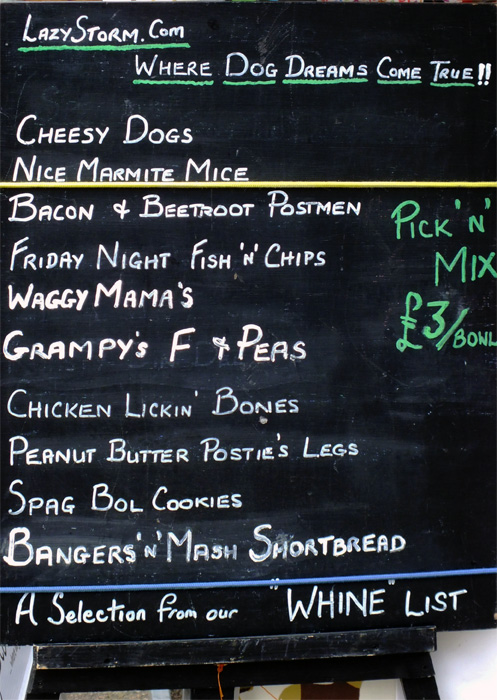 LazyStorm.Com
Where Dog Dreams Come True!!
Cheesy Dogs
Nice Marmite Mice
Bacon & Beetroot Postmen
Friday Night Fish 'n' Chips
Waggy Mama's
Grampy's F & Peas
Chicken Lickin' Bones
Peanut Butter Postie's Legs
Spag Bol Cookies
Bangers 'n' Mash Shortbread
Pick 'n'
Mix
£3/Bowl
A Selection from our "WHINE" LIST